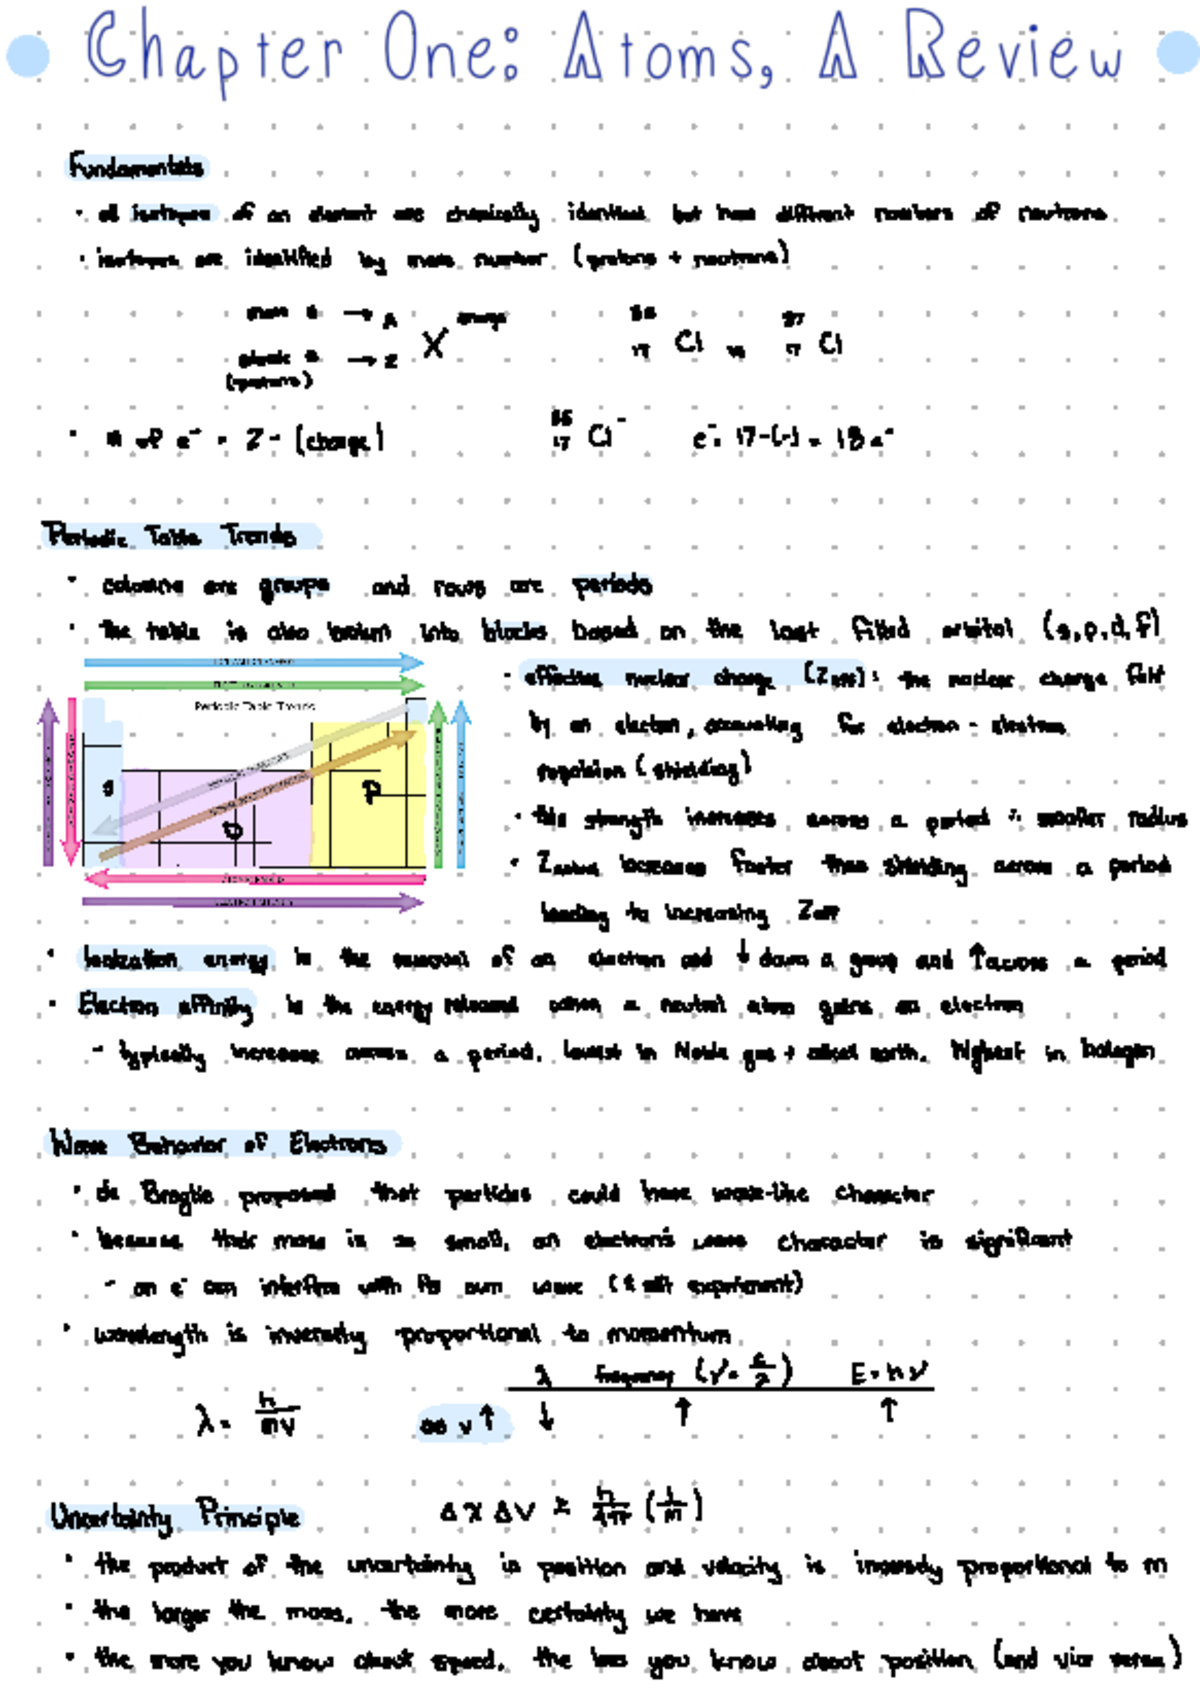 Chapter One: Atoms, A Review
Fundamentals
· all isotopes of an element are chemically identical but have different numbers of neutrons
· isotopes are identified by mass number (protons + neutrons)
mass # → A X charge 35 17 Cl vs 37 17 Cl
atomic # → Z
(protons)
· # of e⁻ = Z - (charge) 35 17 Cl⁻ e⁻: 17-(-1) = 18 e⁻
Periodic Table Trends
· columns are groups and rows are periods
· the table is also broken into blocks based on the last filled orbital (s,p,d,f)
Periodic Table Trends
s
D
P
· effective nuclear charge (Zeff): the nuclear charge felt
by an electron, accounting for electron-electron
repulsion (shielding)
· this strength increases across a period ∴ smaller radius
· Zactual increases faster than shielding across a period
leading to increasing Zeff
· Ionization energy is the removal of an electron and ↓ down a group and ↑ across a period
· Electron affinity is the energy released when a neutral atom gains an electron
- typically increases across a period, lowest in Noble gas + alkali earth, highest in halogen
Wave Behavior of Electrons
· de Broglie proposed that particles could have wave-like character
· because their mass is so small, an electron's wave character is significant
- an e⁻ can interfere with its own wave (2 slit experiment)
· wavelength is inversely proportional to momentum
λ frequency (ν = c/λ) E = hν
λ = h/mv as v ↑ ↓ ↑ ↑
Uncertainty Principle Δx Δv ≥ h/4π (1/m)
· the product of the uncertainty in position and velocity is inversely proportional to m
· the larger the mass, the more certainty we have
· the more you know about speed, the less you know about position (and vice versa)